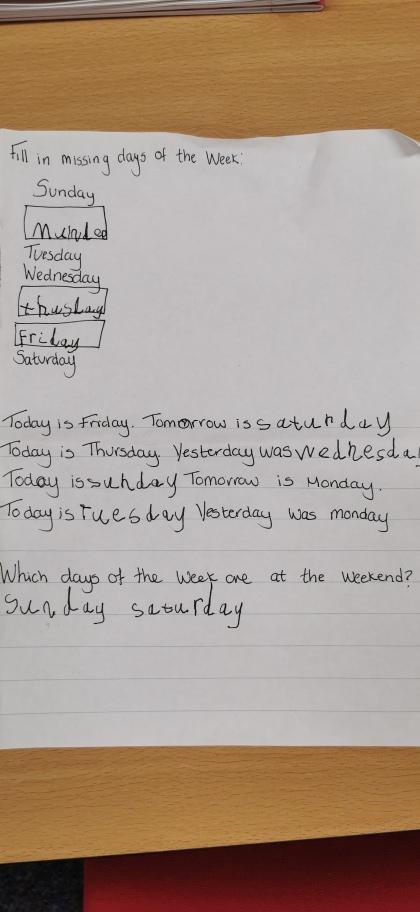 Fill in missing days of the Week:
Sunday
Munded
Tuesday
Wednesday
thusday
Friday
Saturday
Today is Friday. Tomorrow is saturday
Today is Thursday. Yesterday was wednesday
Today is sunday Tomorrow is Monday.
Today is Tuesday Yesterday was monday
Which days of the week are at the weekend?
Sunday saturday